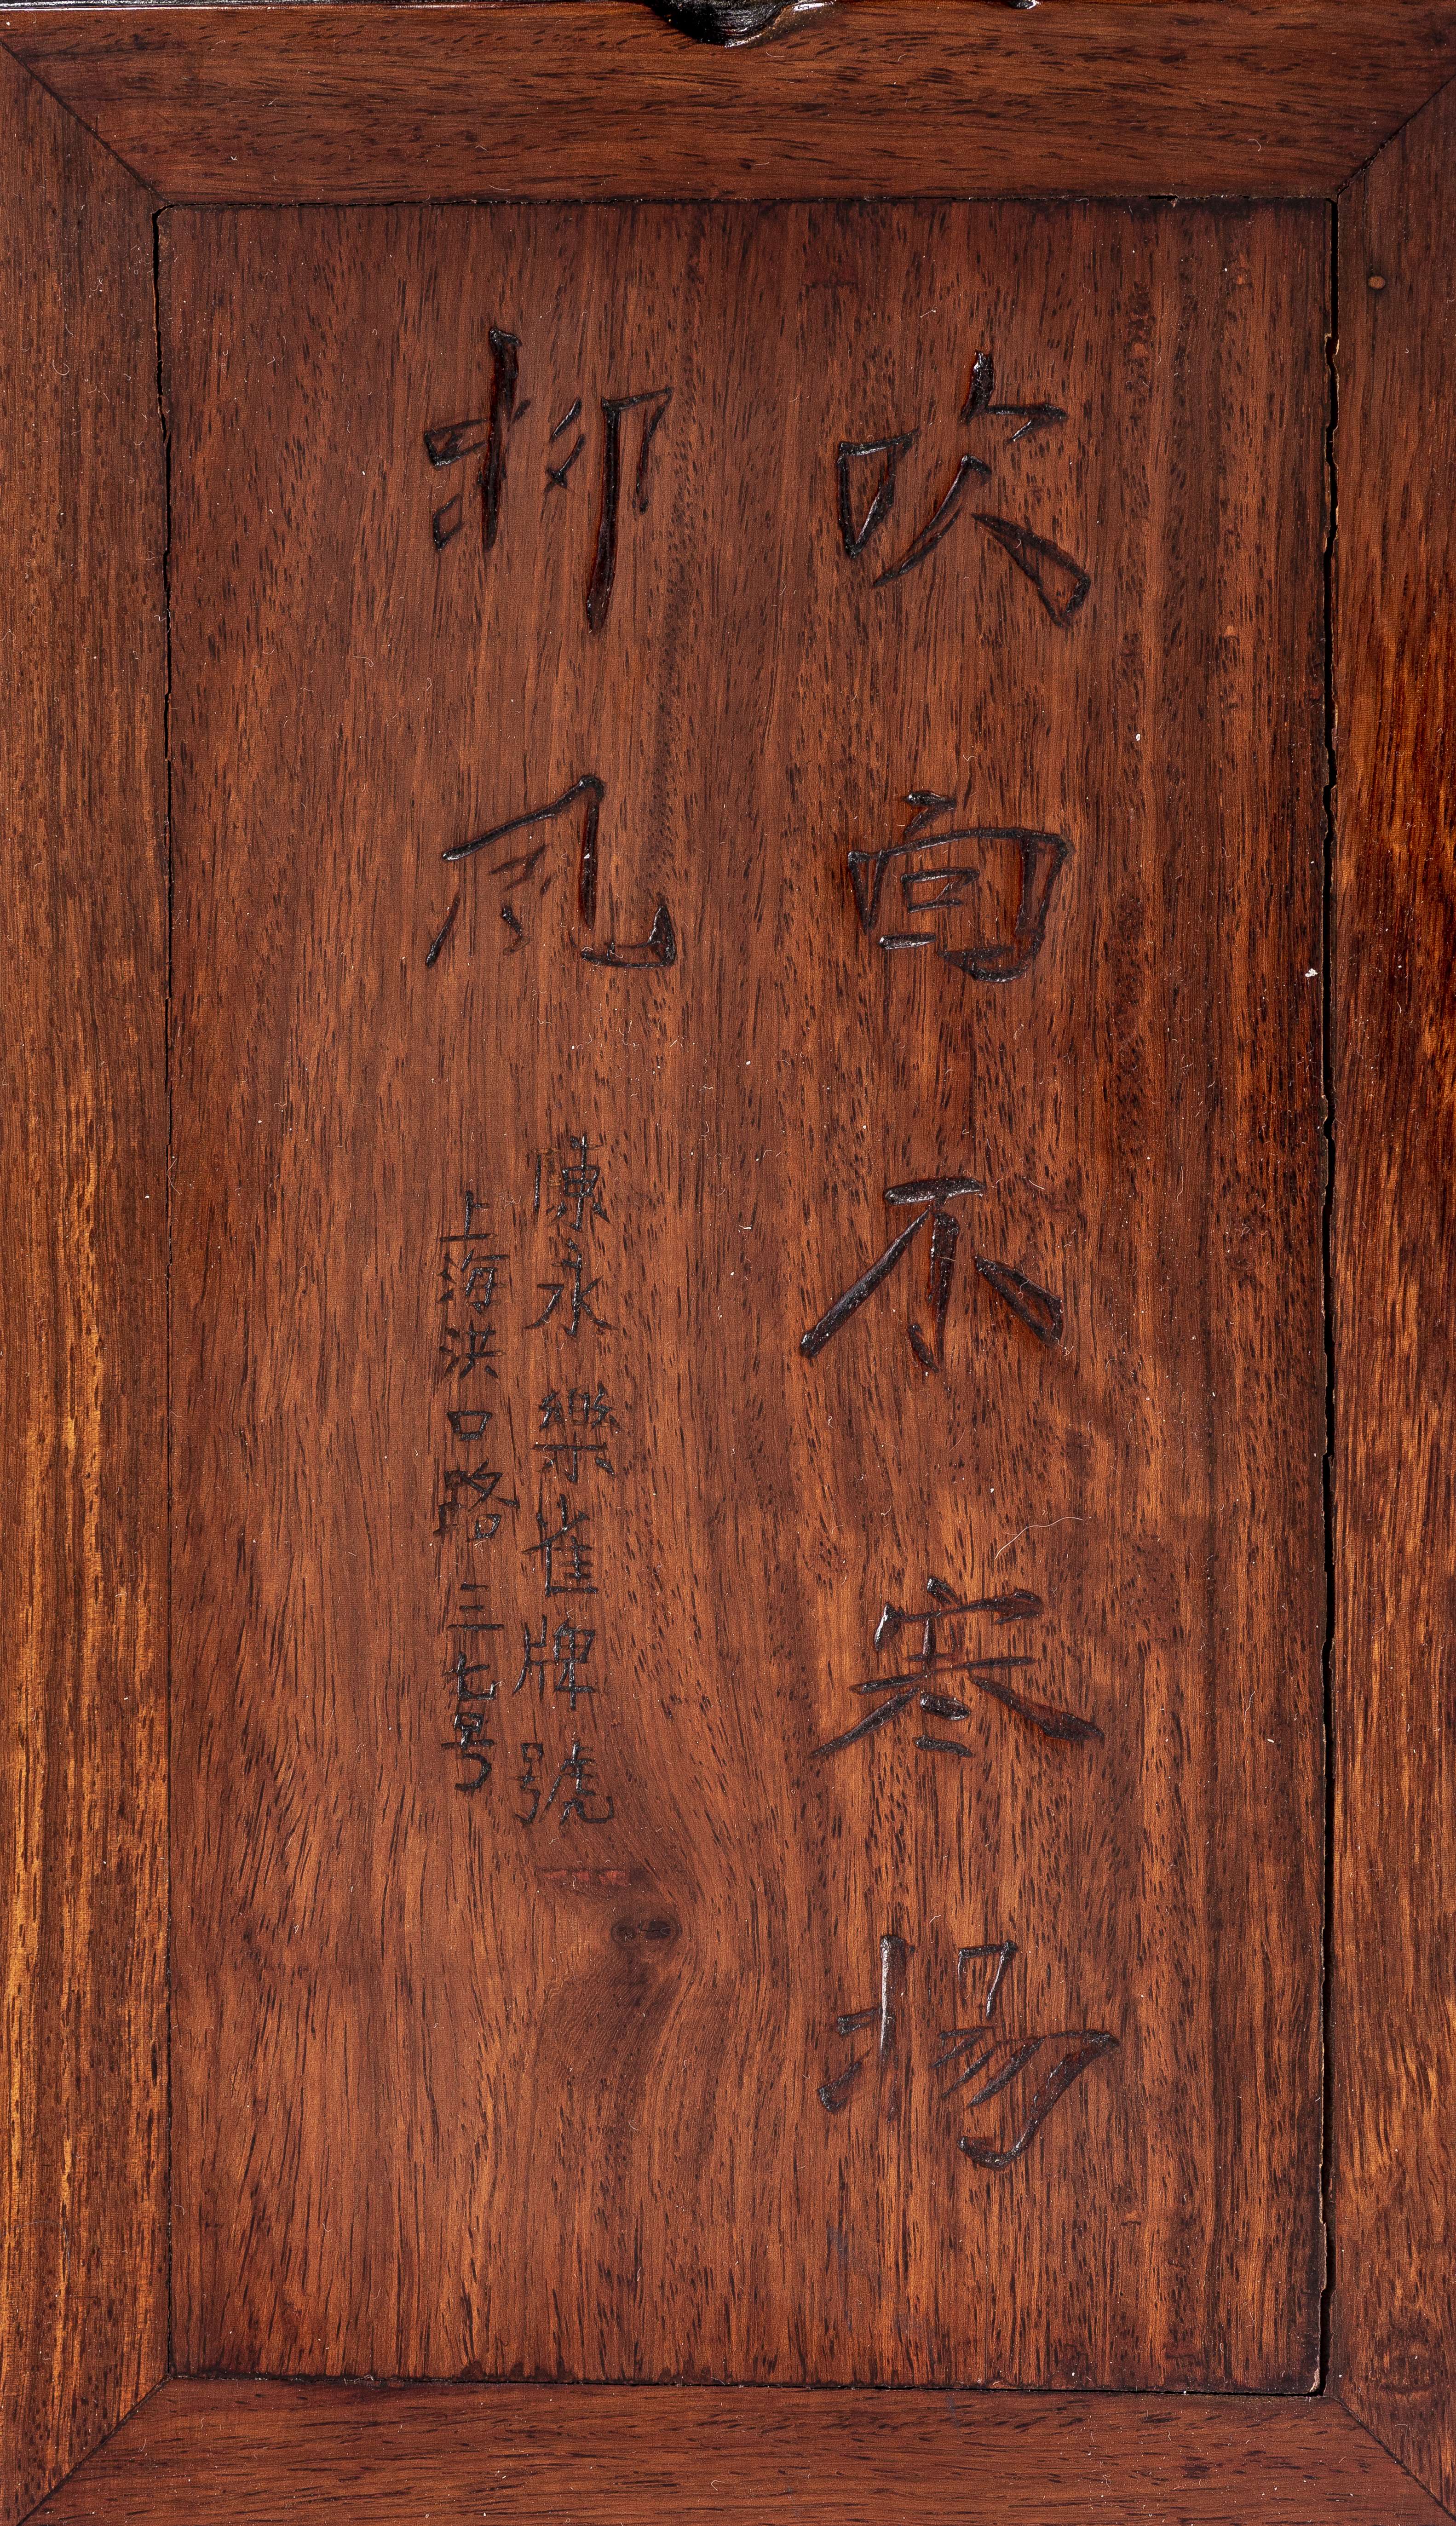 吹面不寒楊
柳風
陳永樂雀牌號
上海洪口路三七号